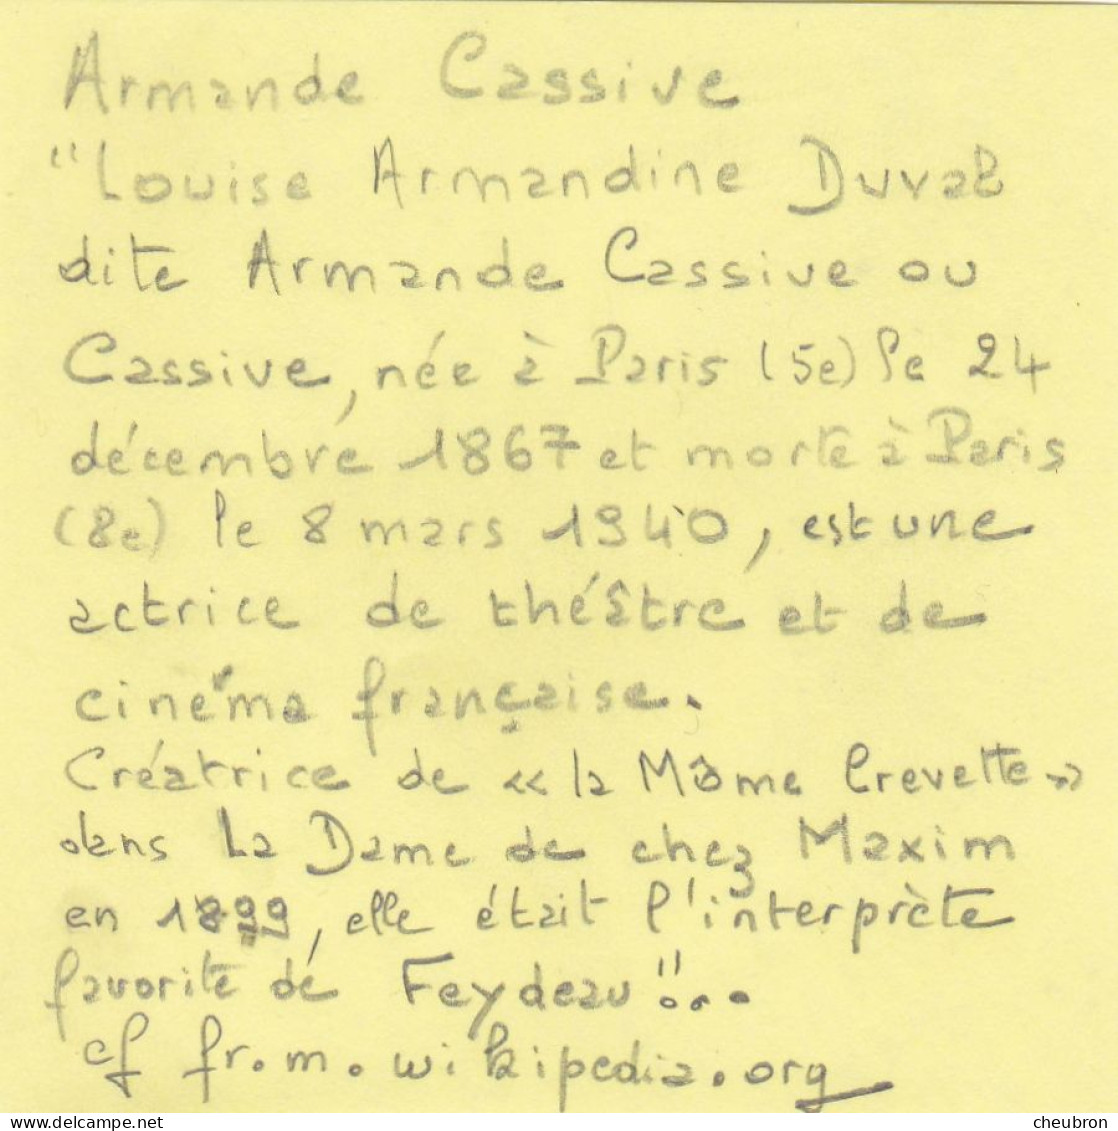 Armande Cassive
"Louise Armandine Duval
dite Armande Cassive ou
Cassive, née à Paris (5e) le 24
décembre 1867 et morte à Paris
(8e) le 8 mars 1940, est une
actrice de théâtre et de
cinéma française.
Créatrice de « la Môme Crevette »
dans La Dame de chez Maxim
en 1899, elle était l'interprète
favorite de Feydeau !!...
cf fr.m.wikipedia.org
cheubron